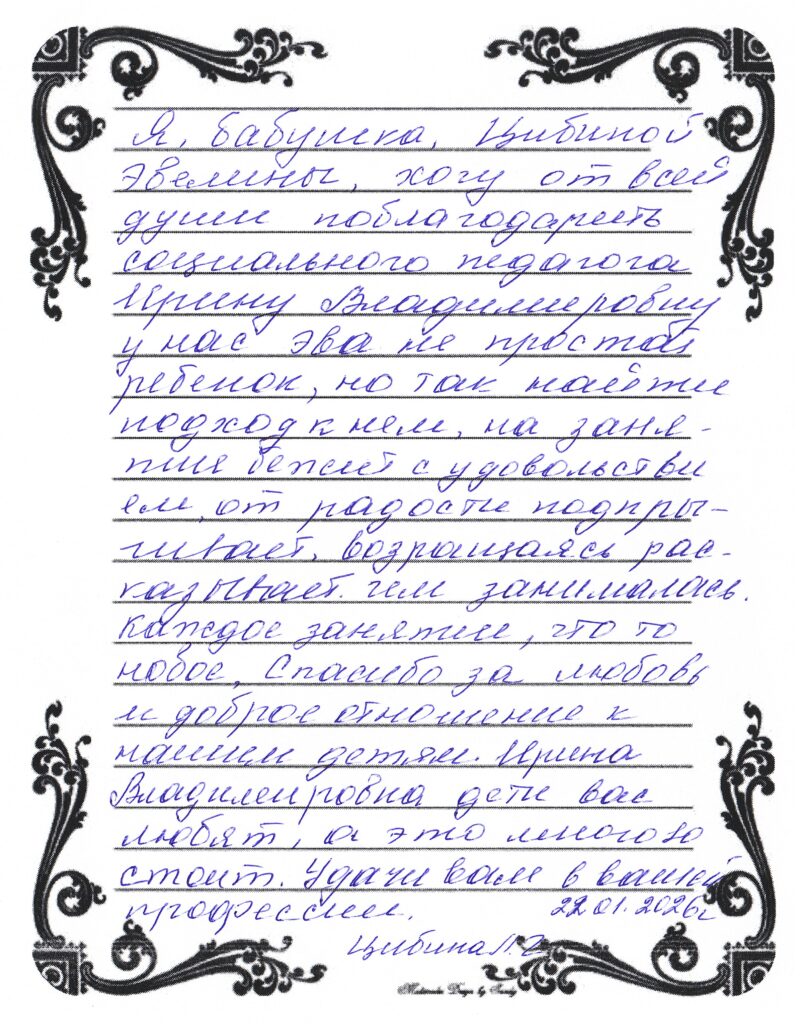 Я, бабушка, Цибиной
Эвелины, хочу от всей
души поблагодарить
социального педагога
Ирину Владимировну
у нас Эва не простой
ребенок, но так найти
подход к нем, на заня-
тие бежит с удовольстви
ем, от радости подпры-
гивает, возращаясь рас-
казывает. чем занималась.
Каждое занятии, что то
новое, Спасибо за любовь
и доброе отношение к
нашим детям. Ирина
Владимировна дети вас
любят, а это многого
стоит. Удачи вам в вашей
профессии. 22.01.2026г
Цибина